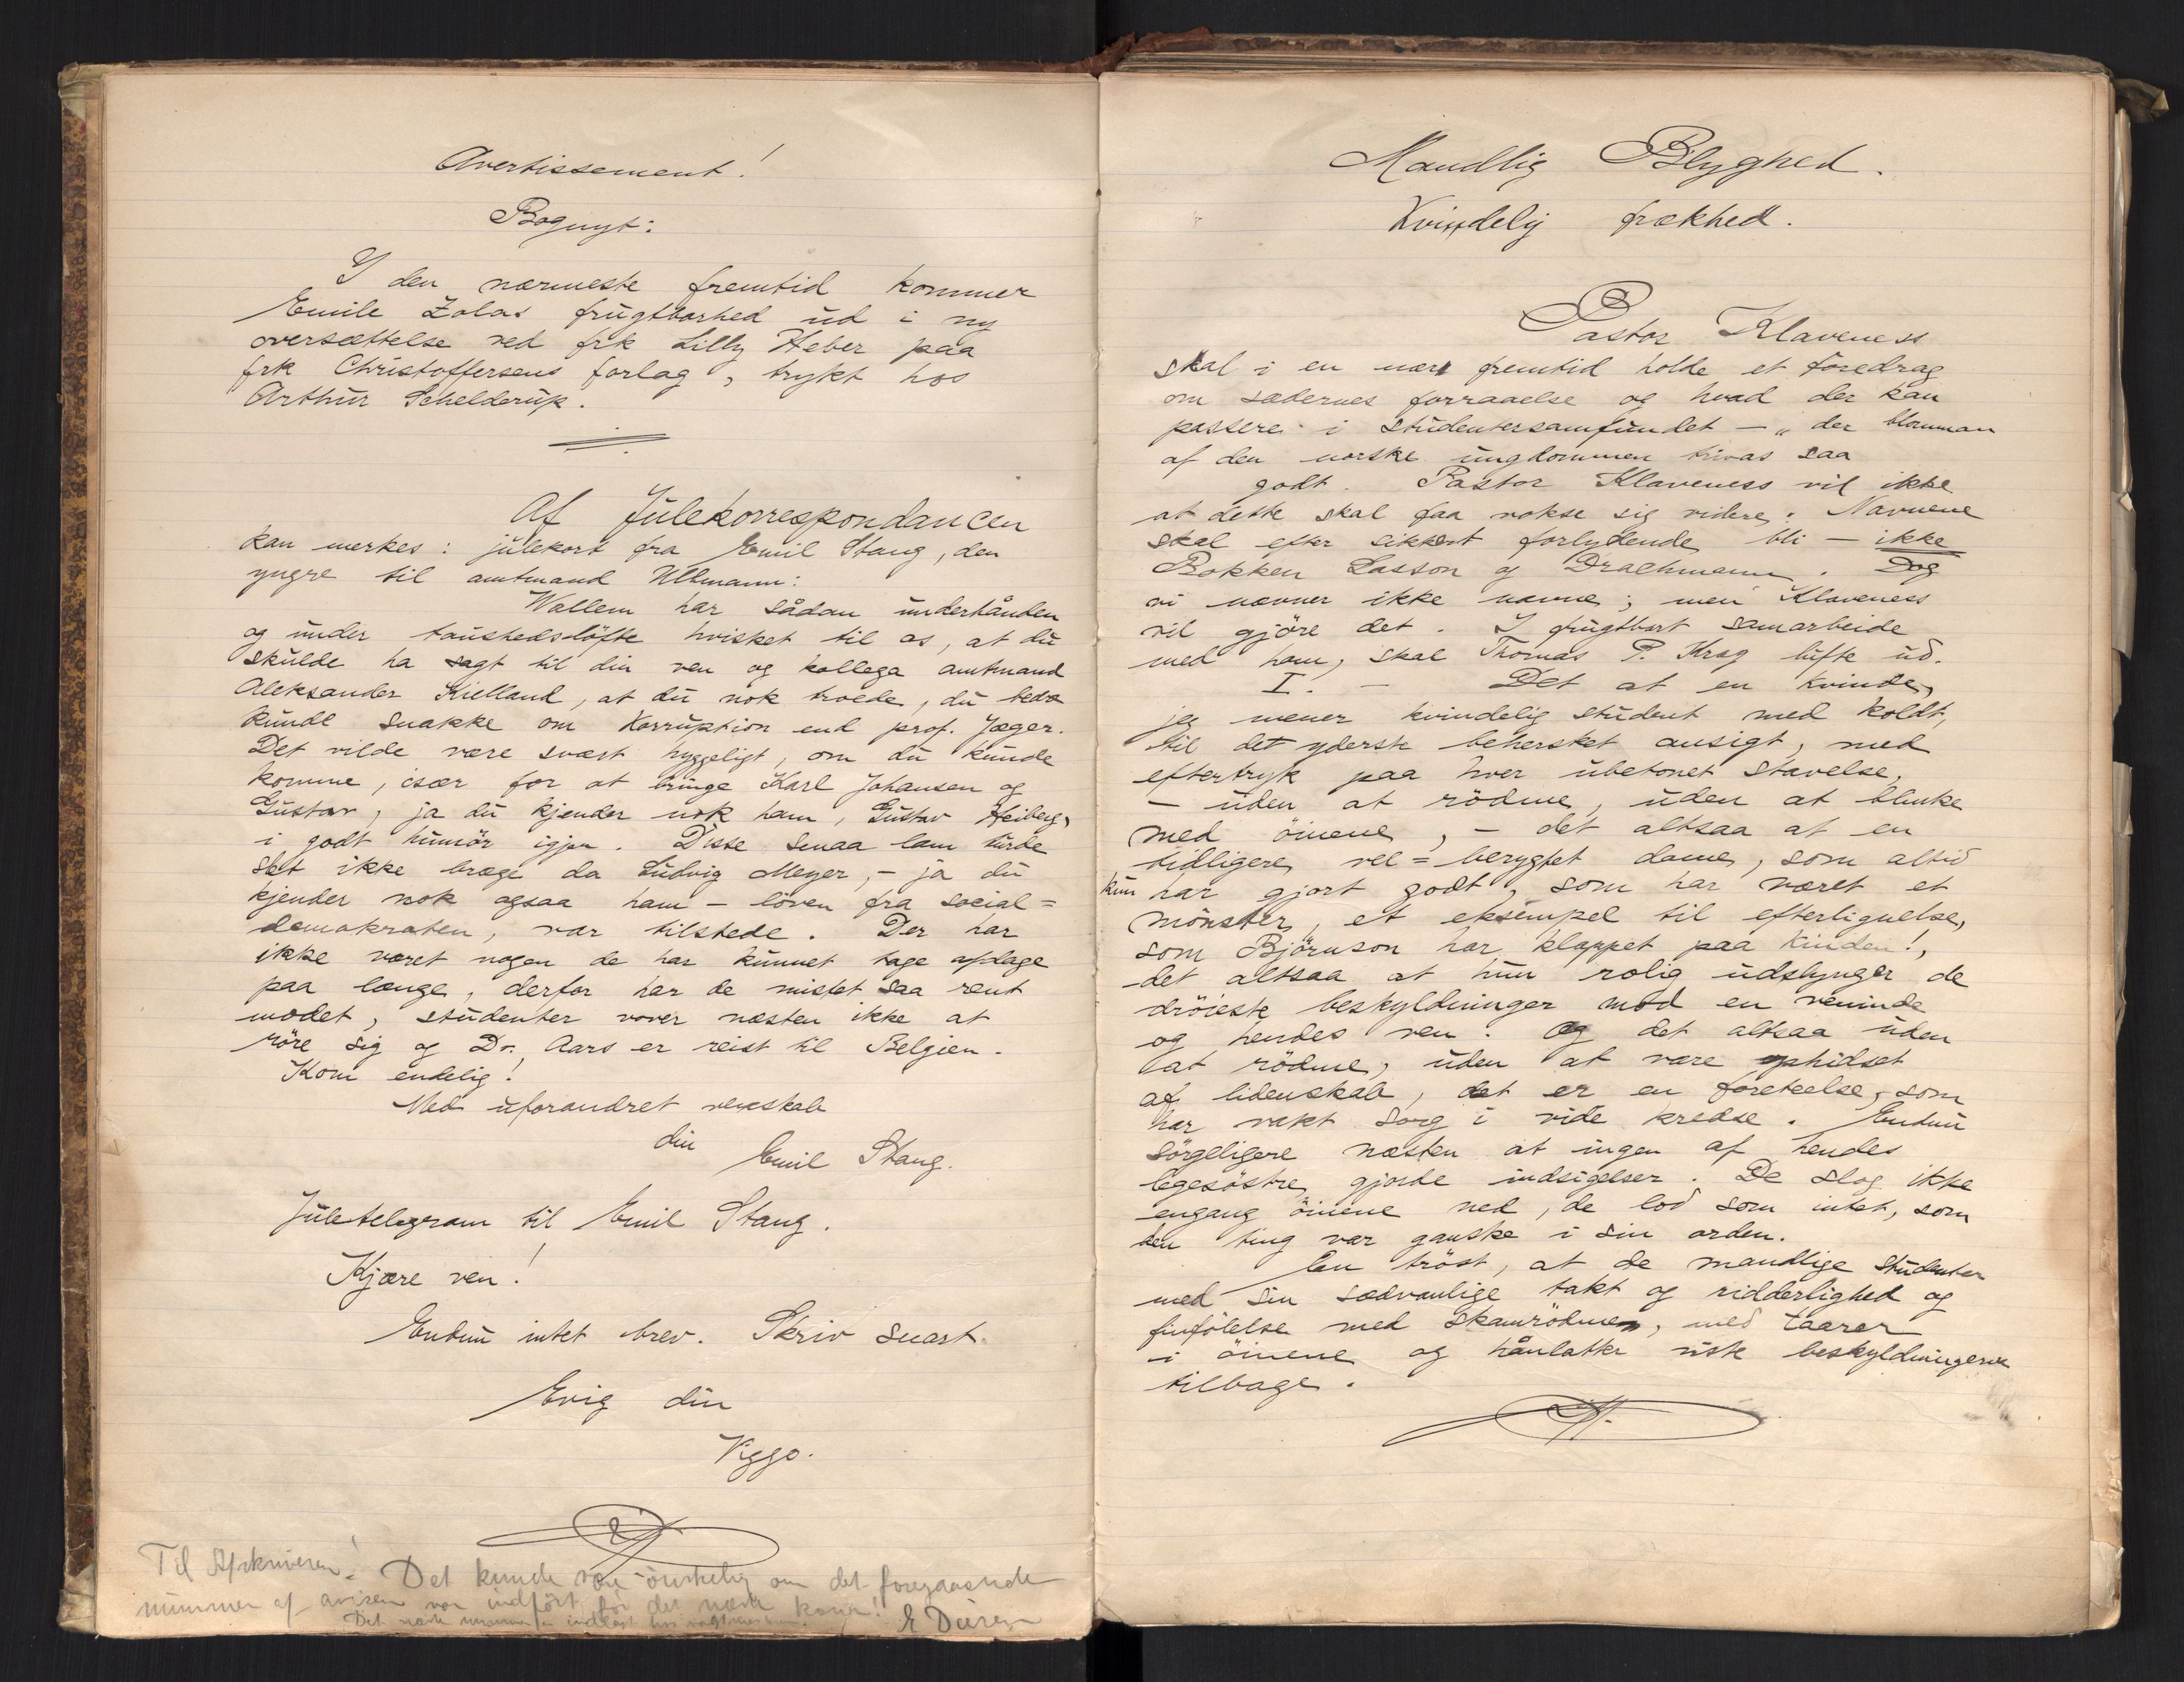 Avertissement!
Bognyt:
I den nærmeste fremtid kommer
Emile Zolas frugtbarhed ud i ny
oversættelse ved frk Lilly Heber paa
frk Christoffersens forlag, trykt hos
Arthur Schelderup.
Af Julekorrespondancen
kan merkes: julekort fra Emil Stang, den
yngre til amtmand Ullmann:
Wallem har sådan underhånden
og under taushedsløfte hvisket til os, at du
skulde ha sagt til din ven og kollega amtmand
Aleksander Kielland, at du nok troede, du bedre
kunde snakke om Korruption end prof. Jæger.
Det vilde være svært hyggeligt, om du kunde
komme, især for at bringe Karl Johansen og
Gustav, ja du kjender nok ham, Gustav Heiberg,
i godt humör igjen. Disse smaa lam turde
slet ikke bræge da Ludvig Meyer, – ja du
kjender nok ogsaa ham – löven fra social=
demokraten, var tilstede. Der har
ikke været nogen de har kunnet tage afdage
paa længe, derfor har de mistet saa rent
modet, studenter vover næsten ikke at
röre sig og Dr. Aars er reist til Belgien.
Kom endelig!
Med uforandret venskab
din
Emil Stang.
Juletelegram til Emil Stang.
Kjære ven!
Endnu intet brev. Skriv snart.
Evig din
Viggo.
Til Afskriveren! Det kunde være önskelig om det foregaaende
nummer af avisen var indfört för det næste kom!
Det næste nummer er indlöst hos
E Düren
Mandlig Blyghed.
Kvindelig frækhed.
Pastor Klaveness
skal i en nær fremtid holde et foredrag
om sædernes forraaelse og hvad der kan
passere i studentersamfundet – „der blomman
af den norske ungdommen trivas saa
godt. Pastor Klaveness vil ikke
at dette skal faa vokse sig videre. Navnene
skal efter sikkert forlydende bli – ikke
Bokken Lasson og Drachmann. Dog
vi nævner ikke navne; men Klaveness
vil gjöre det. I frugtbart samarbeide
med ham, skal Thomas P. Krag lufte ud.
I. – Det at en kvinde,
jeg mener kvindelig student med koldt,
til det yderste behersket ansigt, med
eftertryk paa hver ubetonet stavelse,
– uden at rödme, uden at blinke
med öinene, – det altsaa at en
tidligere vel=berygtet dame, som altid
kun har gjort godt, som har været et
mönster, et eksempel til efterlignelse,
som Björnson har klappet paa kinden!,
det altsaa at hun rolig udslynger de
dröieste beskyldninger mod en veninde
og hendes ven. Og det altsaa uden
at rödme, uden at være ophidset
af lidenskab, det er en foreteelse, som
har vakt sorg i vide kredse. Endnu
sörgeligere næsten at ingen af hendes
legesöstre gjorde indsigelser. De slog ikke
engang öinene ned, de lod som intet, som
den ting var ganske i sin orden.
En tröst, at de mandlige studenter
med sin sædvanlige takt og ridderlighed og
finfölelse med skamrödmen, med taarer
i öinene og hånlatter viste beskyldningerne
tilbage.